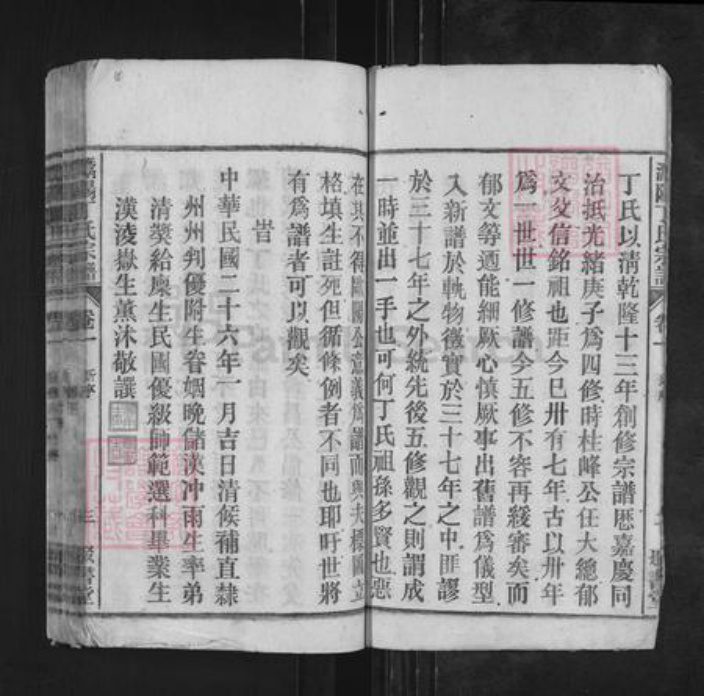 丁氏以清乾隆十三年創修宗譜厯嘉慶同
治抵光緒庚子為四修時桂峰公任大總郁
文攵信銘祖也距今巳卅有七年古以卅年
為一世世一修譜今五修不容再緩審矣而
郁文等迺能細厥心慎厥事出舊譜為儀型
入新譜於軌物徵實於三十七年之中匪謬
於三十七年之外統先後五修觀之則謂成
一時並出一手也可何丁氏祖孫多賢也惡
在其不得歐陽公意義為譜而與夫標圖立
格填生註死但循條例者不同也耶吁世將
有為譜者可以觀矣
旹
中華民國二十六年一月吉日清候補直隸
州州判優附生眷姻晚儲漢冲雨生率弟
清獎給廩生民國優級師範選科畢業生
漢淩嶽生薰沐敬譔
丁氏宗譜
卷一
新序
三